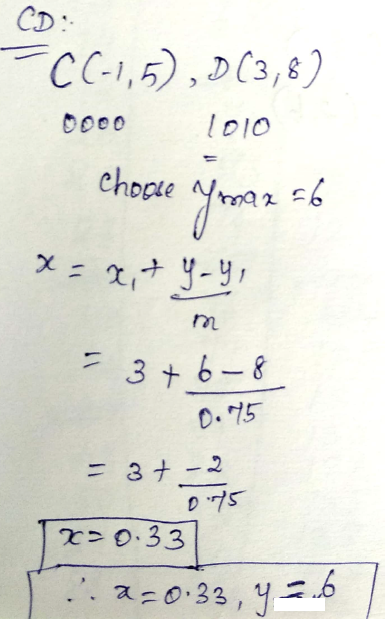 CD:-
C(-1,5), D(3,8)
0000 1010
choose ymax = 6
x = x1 + y-y1
m
= 3 + 6-8
0.75
= 3 + -2
0.75
x = 0.33
∴ x = 0.33, y = 6